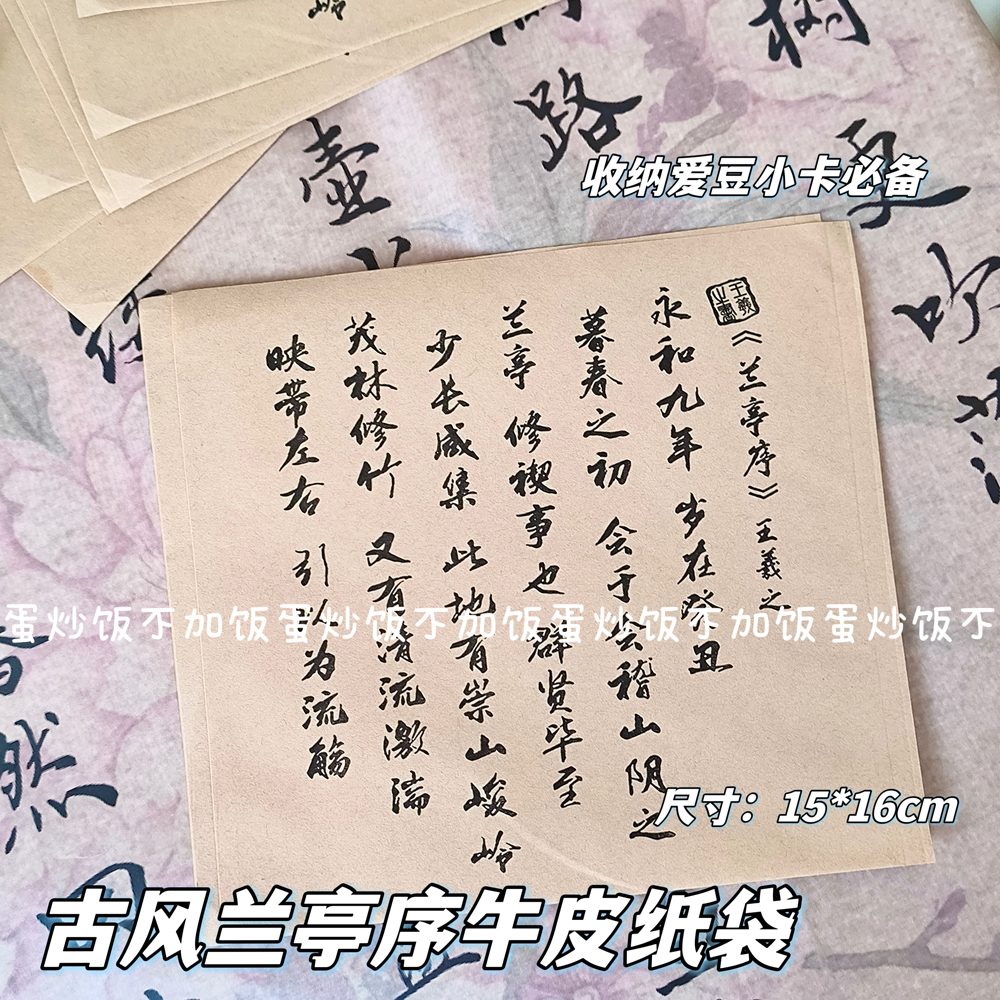 岭
壶
路
树
更
吹
然
收纳爱豆小卡必备
王羲之書
《兰亭序》 王羲之
永和九年 岁在癸丑
暮春之初 会于会稽山阴之
兰亭 修禊事也 群贤毕至
少长咸集 此地有崇山峻岭
茂林修竹 又有清流激湍
映带左右 引以为流觞
蛋炒饭不加饭蛋炒饭不加饭蛋炒饭不
尺寸：15*16cm
古风兰亭序牛皮纸袋